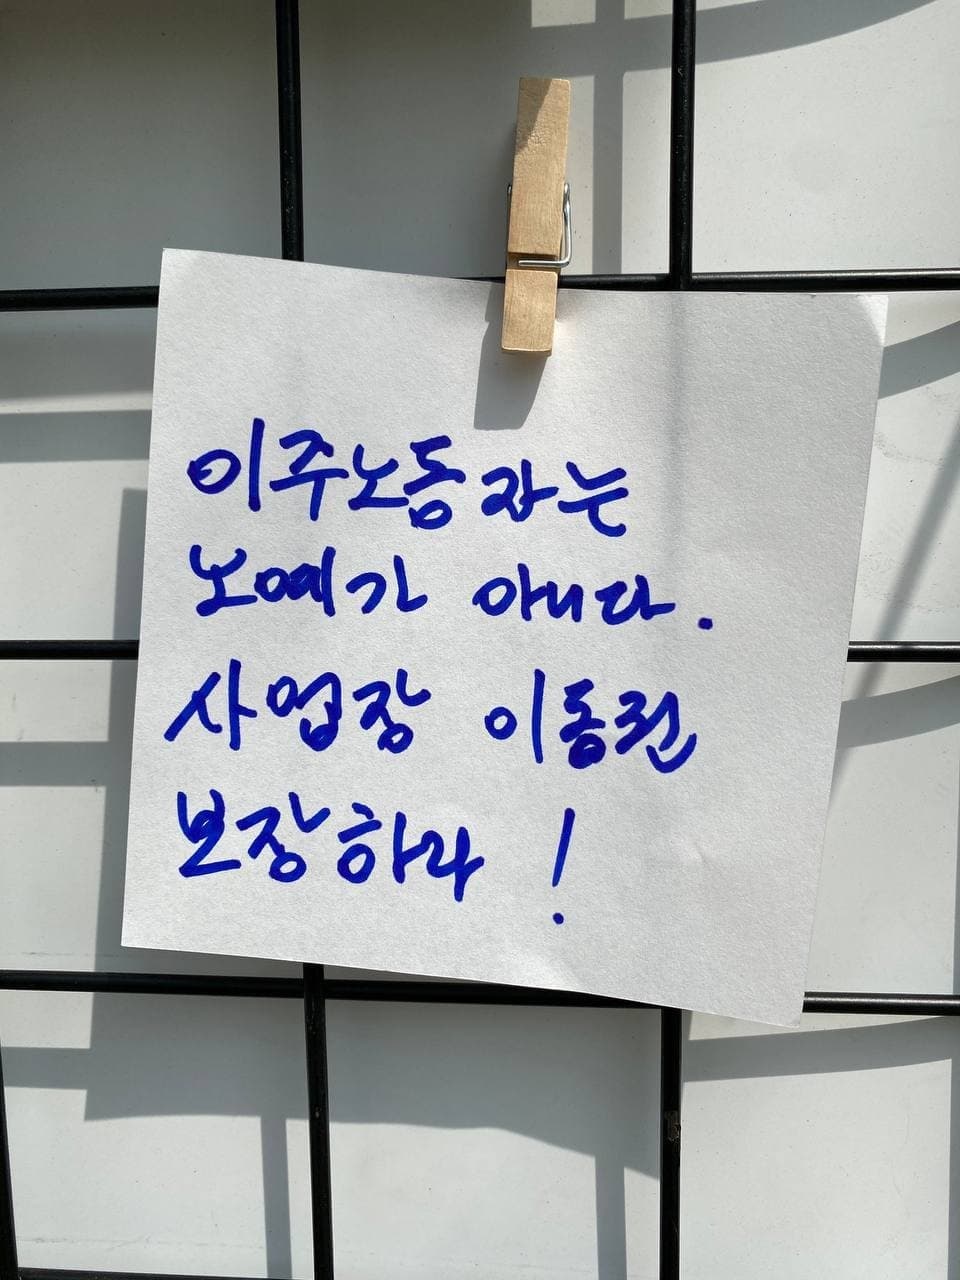 이주노동자는
노예가 아니다.
사업장 이동권
보장하라 !